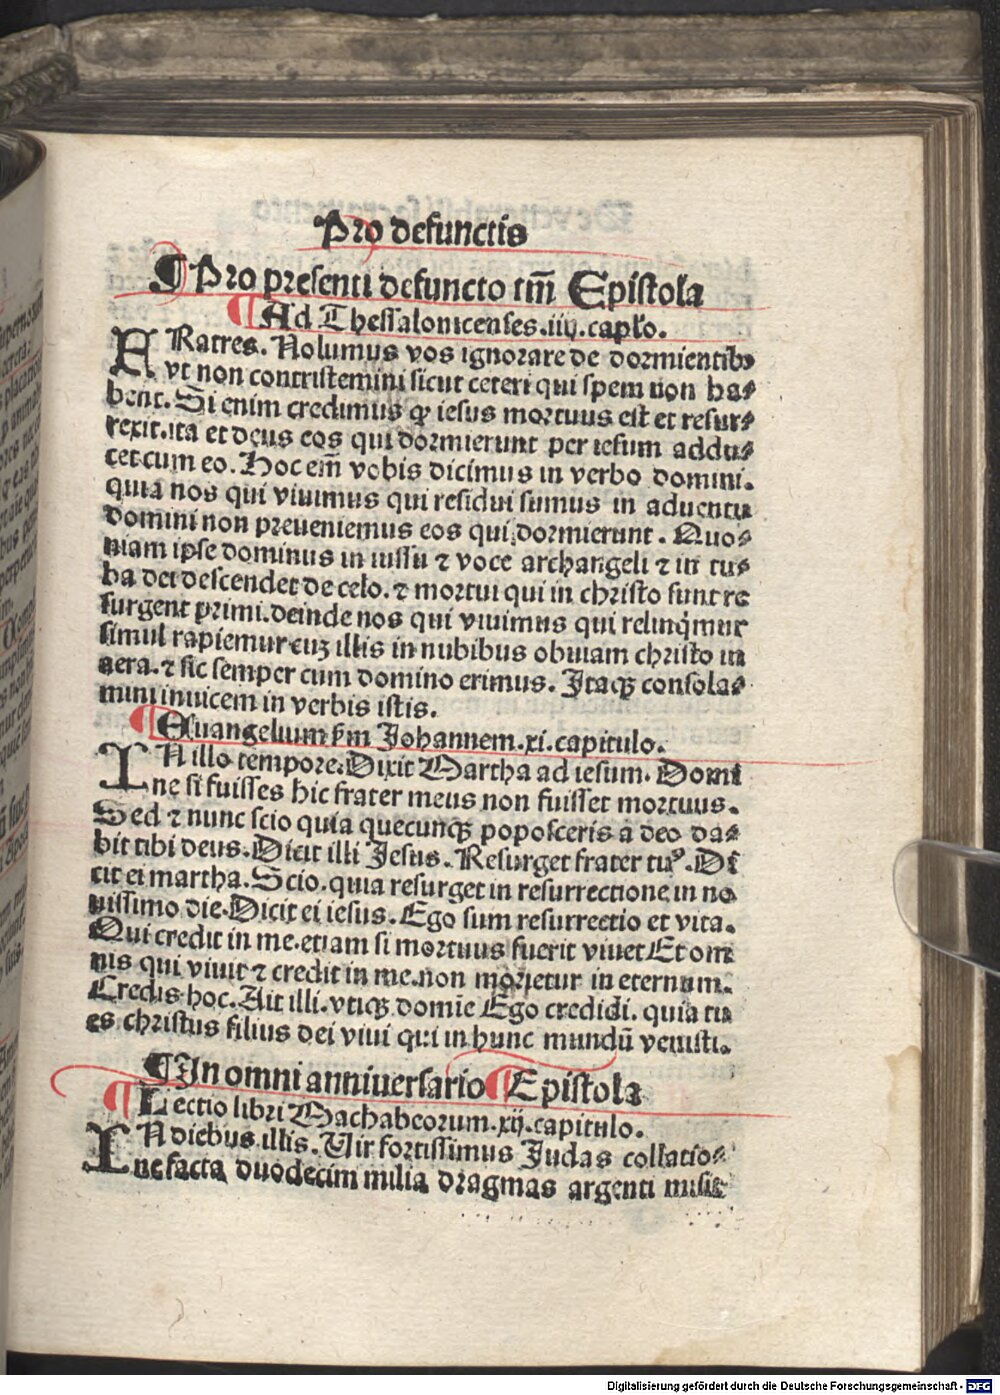 Pro defunctis
¶ Pro presenti defuncto tm̄ Epistola
¶ Ad Thessalonicenses .iiij. capło.
FRatres. Nolumus vos ignorare de dormientibꝰ
vt non contristemini sicut ceteri qui spem non ha⸗
bent. Si enim credimus ꝙ iesus mortuus est et resur⸗
rexit. ita et deus eos qui dormierunt per iesum addu⸗
cet cum eo. Hoc em̄ vobis dicimus in verbo domini.
quia nos qui viuimus qui residui sumus in aduentu
domini non preueniemus eos qui dormierunt. Quo⸗
niam ipse dominus in iussu ⁊ voce archangeli ⁊ in tu⸗
ba dei descendet de celo. ⁊ mortui qui in christo sunt re
surgent primi. deinde nos qui viuimus qui relinq̄mur
simul rapiemur cuꝫ illis in nubibus obuiam christo in
aera. ⁊ sic semper cum domino erimus. Itaqꝫ consola⸗
mini inuicem in verbis istis.
¶ Euangelium ẜm Johannem .xi. capitulo.
IN illo tempore. Dixit Martha ad iesum. Domi
ne si fuisses hic frater meus non fuisset mortuus.
Sed ⁊ nunc scio quia quecunqꝫ poposceris a deo da⸗
bit tibi deus. Dicit illi Jesus. Resurget frater tuꝰ. Di
cit ei martha. Scio. quia resurget in resurrectione in no
uissimo die. Dicit ei iesus. Ego sum resurrectio et vita.
Qui credit in me. etiam si mortuus fuerit viuet Et om
nis qui viuit ⁊ credit in me. non morietur in eternum.
Credis hoc. Ait illi. vtiqꝫ domīe Ego credidi. quia tu
es christus filius dei viui qui in hunc mundū venisti.
¶ In omni anniuersario ¶ Epistola
¶ Lectio libri Machabeorum .xij. capitulo.
IN diebus illis. Uir fortissimus Judas collatio⸗
ne facta duodecim milia dragmas argenti misit
Digitalisierung gefördert durch die Deutsche Forschungsgemeinschaft - DFG